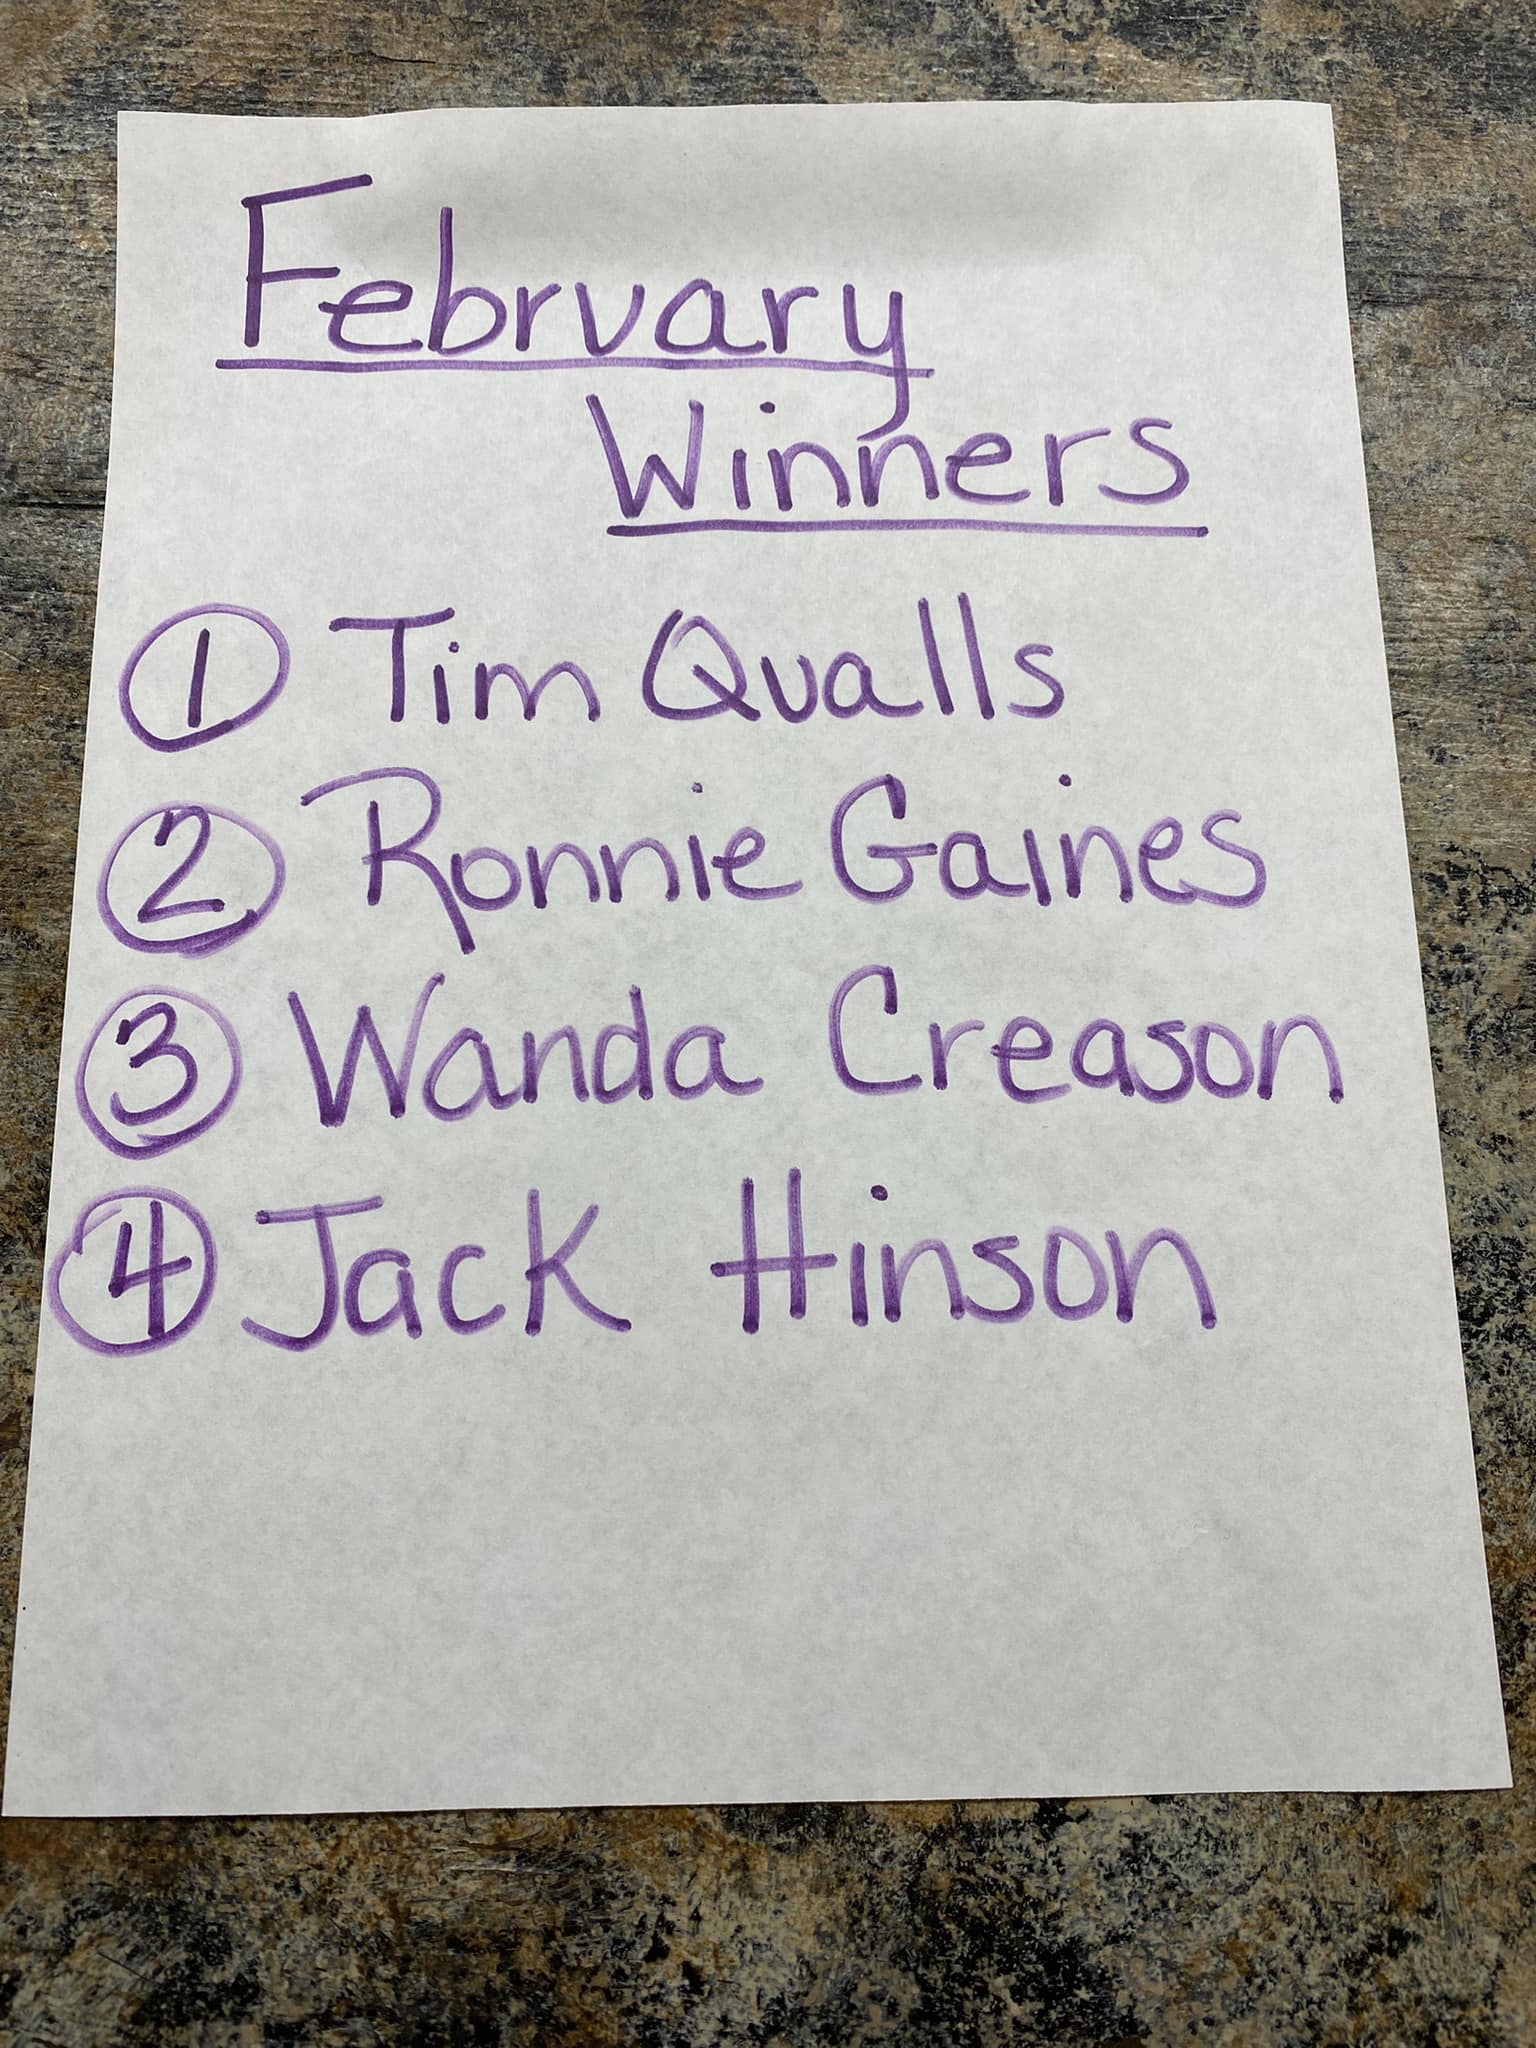 February
Winners
1 Tim Qualls
2 Ronnie Gaines
3 Wanda Creason
4 Jack Hinson